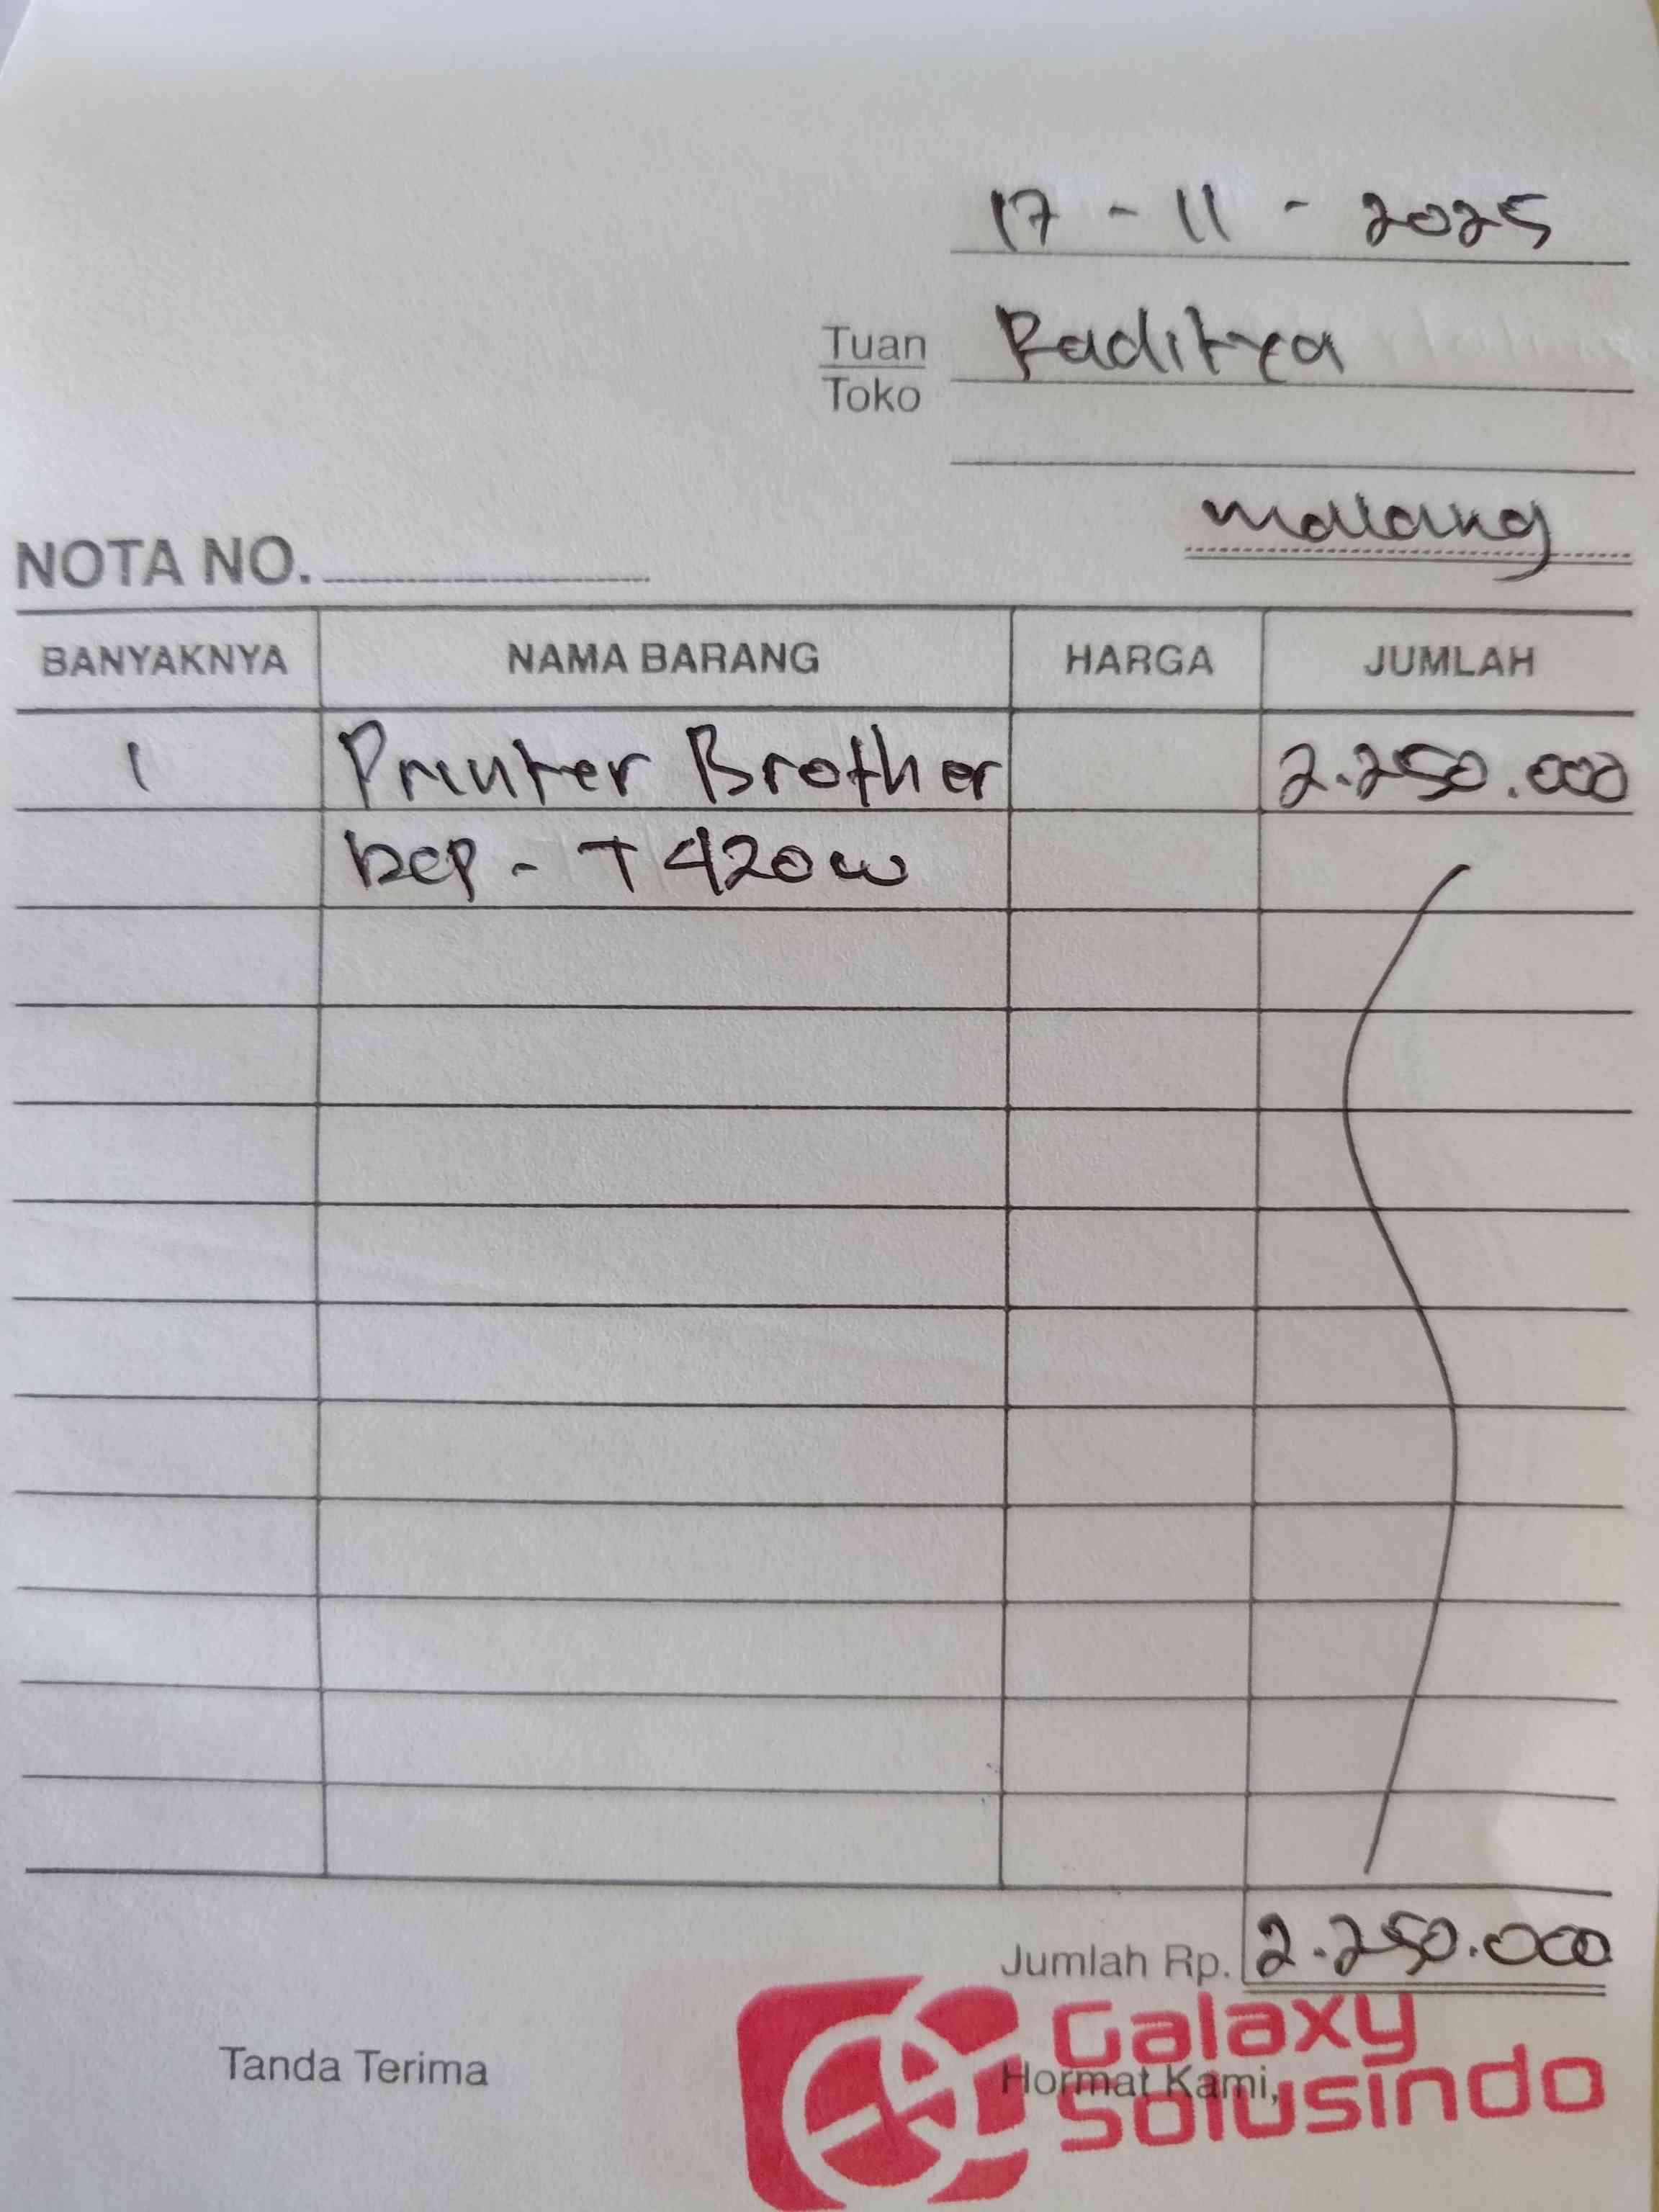 17 - 11 - 2025
Tuan Raditya
Toko
malang
NOTA NO.
BANYAKNYA NAMA BARANG HARGA JUMLAH
1 Printer Brother 2.250.000
DCP - T420W
Jumlah Rp. 2.250.000
Galaxy
Tanda Terima Hormat Kami,
Solusindo